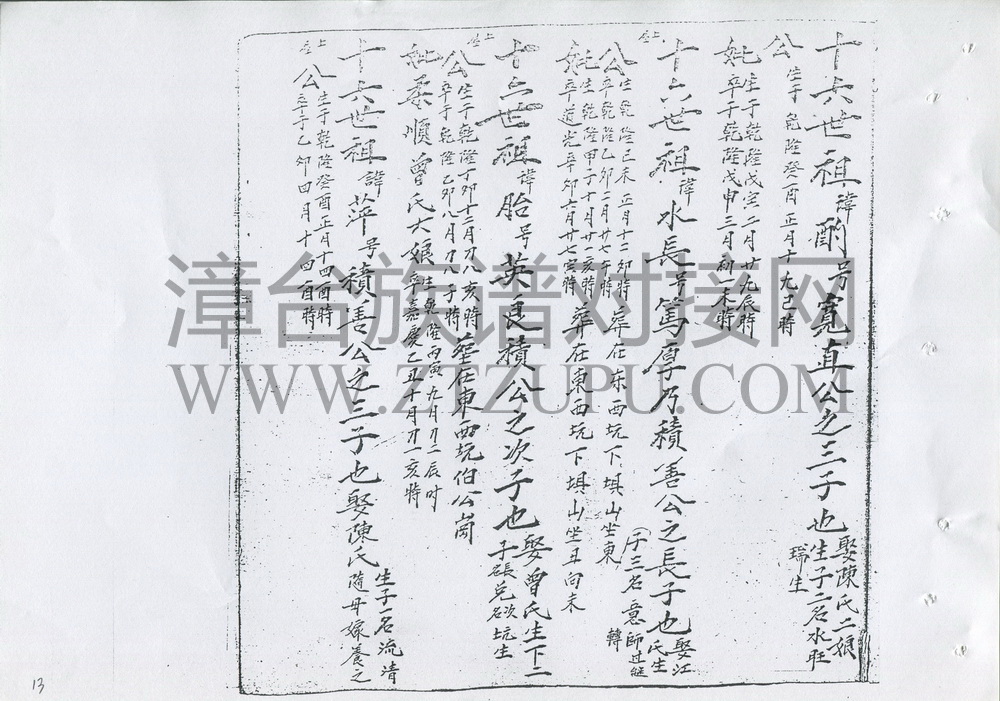 十六世祖諱酧号寬直公之三子也娶陳氏二娘
生子二名水旺
瑞生
公生于乾隆癸酉正月十九巳時
妣生于乾隆戊寅二月廿九辰時
卒于乾隆戊申三月初一未時
十六世祖諱水長号篤厚乃積善公之長子也娶江
氏生
子三名意師过継
轉
公生乾隆己未正月十二卯時
卒乾隆乙卯二月廿七午時葬在东西坑下埧山坐東
妣生乾隆甲子十月廿六亥時
卒道光辛卯六月廿七寅時葬在東西坑下埧山坐丑向未
十六世祖諱胎号英良積公之次子也娶曾氏生下二
子
坑生
上
公生于乾隆丁卯十二月初八亥時
卒于乾隆乙卯八月初八子時塟在東西坑伯公崗
妣柔順曾氏大娘生乾隆丙寅九月初二辰时
卒嘉慶乙丑十月初一亥時
十六世祖諱萍号積善公之三子也娶陳氏
生子一名流清
隨母嫁養之
上
公生于乾隆癸酉正月十四酉時
卒于乙卯四月十四酉時
漳台族谱对接网
WWW.ZTZUPU.COM
13